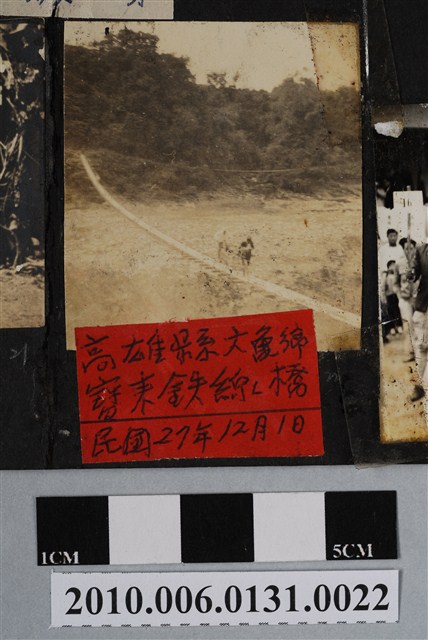 高雄縣六龜鄉
寶來鉄線橋
民國27年12月1日
1CM
5CM
2010.006.0131.0022